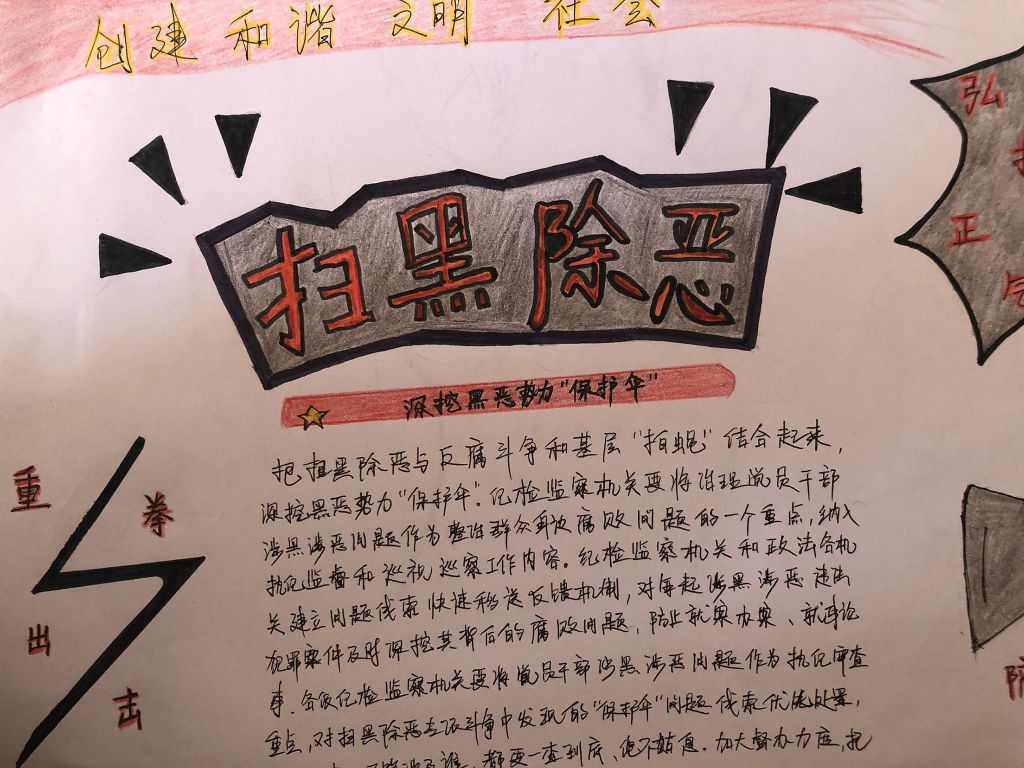 创建 和谐 文明 社会
弘
正
气
扫黑除恶
深挖黑恶势力“保护伞”
把扫黑除恶与反腐斗争和基层“拍蝇”结合起来,
深挖黑恶势力“保护伞”。纪检监察机关要将治理党员干部
涉黑涉恶问题作为整治群众身边腐败问题的一个重点,纳入
执纪监督和巡视巡察工作内容。纪检监察机关和政法各机
关建立问题线索快速移送反馈机制,对每起涉黑涉恶违法
犯罪案件及时深挖其背后的腐败问题,防止就案办案、就事论
事。各级纪检监察机关要将党员干部涉黑涉恶问题作为执纪审查
重点,对扫黑除恶专项斗争中发现的“保护伞”问题线索优先处置,
谁,都要一查到底、绝不姑息。加大督办力度,把
重
拳
出
击